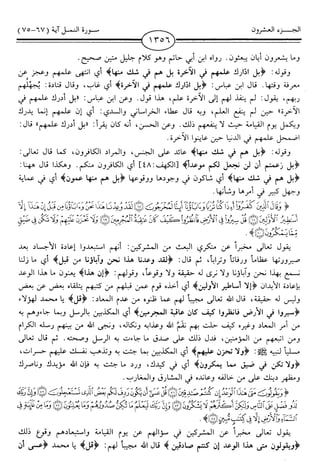 الجـــزء العشرون
١٣٥٦
سـورة النمل آية (٦٧-٧٥)
وما يشعرون أيان يبعثون. رواه ابن أبي حاتم وهو كلام جليل متين صحيح.
وقوله: ﴿بل ادّارك علمهم في الآخرة بل هم في شك منها﴾ أي انتهى علمهم وعجز عن
معرفة وقتها. قال ابن عباس: ﴿بل ادّارك علمهم في الآخرة﴾ أي غاب، وقال قتادة: يُجهِّلُهم
ربهم، يقول: لم ينفذ لهم إلى الآخرة علم، هذا قول. وعن ابن عباس: «بل أدرك علمهم في
الآخرة» حين لم ينفع العلم، وبه قال عطاء الخراساني والسدي: إن علمهم إنما يدرك
ويكمل يوم القيامة حيث لا ينفعهم ذلك. وعن الحسن، أنه كان يقرأ: «بل أدرك علمهم» قال:
اضمحل علمهم في الدنيا حين عاينوا الآخرة.
وقوله: ﴿بل هم في شك منها﴾ عائد على الجنس، والمراد الكافرون، كما قال تعالى:
﴿بل زعمتم أن لن نجعل لكم موعداً﴾ [الكهف: ٤٨] أي الكافرون منكم. وهكذا قال ههنا:
﴿بل هم في شك منها﴾ أي شاكون في وجودها ووقوعها ﴿بل هم منها عمون﴾ أي في عماية
وجهل كبير في أمرها وشأنها.
﴿وَقَالَ الَّذِينَ كَفَرُوا أَءِذَا كُنَّا تُرَابًا وَءَابَاؤُنَا أَئِنَّا لَمُخْرَجُونَ لَقَدْ وُعِدْنَا هَذَا نَحْنُ وَءَابَاؤُنَا مِن قَبْلُ إِنْ هَذَا إِلَّا
أَسَاطِيرُ الْأَوَّلِينَ قُلْ سِيرُوا فِي الْأَرْضِ فَانظُرُوا كَيْفَ كَانَ عَاقِبَةُ الْمُجْرِمِينَ وَلَا تَحْزَنْ عَلَيْهِمْ وَلَا تَكُن فِي ضَيْقٍ
مِّمَّا يَمْكُرُونَ﴾.
يقول تعالى مخبراً عن منكري البعث من المشركين: أنهم استبعدوا إعادة الأجساد بعد
صيرورتها عظاماً ورفاتاً وتراباً، ثم قال: ﴿لقد وعدنا هذا نحن وآباؤنا من قبل﴾ أي ما زلنا
نسمع بهذا نحن وآباؤنا ولا نرى له حقيقة ولا وقوعاً، وقولهم: ﴿إن هذا﴾ يعنون ما هذا الوعد
بإعادة الأبدان ﴿إلا أساطير الأولين﴾ أي أخذه قوم عمن قبلهم من كتبهم يتلقاه بعض عن بعض
وليس له حقيقة، قال الله تعالى مجيباً لهم عما ظنوه من عدم المعاد: ﴿قل﴾ يا محمد لهؤلاء
﴿سيروا في الأرض فانظروا كيف كان عاقبة المجرمين﴾ أي المكذبين بالرسل وبما جاءوهم به
من أمر المعاد وغيره كيف حلت بهم نقم الله وعذابه ونكاله، ونجى الله من بينهم رسله الكرام
ومن اتبعهم من المؤمنين، فدل ذلك على صدق ما جاءت به الرسل وصحته. ثم قال تعالى
مسلياً لنبيه ﷺ: ﴿ولا تحزن عليهم﴾ أي المكذبين بما جئت به وتذهب نفسك عليهم حسرات،
﴿ولا تكن في ضيق مما يمكرون﴾ أي في كيدك، ورد ما جئت به فإن الله مؤيدك وناصرك
ومظهر دينك على من خالفه وعانده في المشارق والمغارب.
﴿وَيَقُولُونَ مَتَى هَذَا الْوَعْدُ إِن كُنتُمْ صَادِقِينَ قُلْ عَسَى أَن يَكُونَ رَدِفَ لَكُم بَعْضُ الَّذِي تَسْتَعْجِلُونَ وَإِنَّ رَبَّكَ
لَذُو فَضْلٍ عَلَى النَّاسِ وَلَكِنَّ أَكْثَرَهُمْ لَا يَشْكُرُونَ وَإِنَّ رَبَّكَ لَيَعْلَمُ مَا تُكِنُّ صُدُورُهُمْ وَمَا يُعْلِنُونَ وَمَا مِنْ غَائِبَةٍ فِي
السَّمَاءِ وَالْأَرْضِ إِلَّا فِي كِتَابٍ مُّبِينٍ﴾.
يقول تعالى مخبراً عن المشركين في سؤالهم عن يوم القيامة واستبعادهم وقوع ذلك
﴿ويقولون متى هذا الوعد إن كنتم صادقين﴾ قال الله مجيباً لهم: ﴿قل﴾ يا محمد ﴿عسى أن